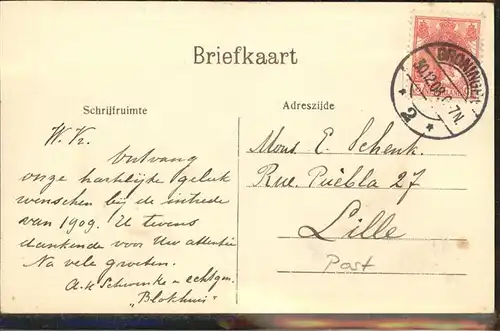 Briefkaart
GRONINGEN
30.12.08. 6-7N.
2
Schrijfruimte
Adreszijde
W. K.
Ontvang
onze hartelijke geluk
wenschen bij de intrede
van 1909. U tevens
dankende voor Uw attentie
Na vele groeten.
echtgen.
"Blokhuis"
Mons. E. Schenk.
Rue. Puebla 27
Lille
Post